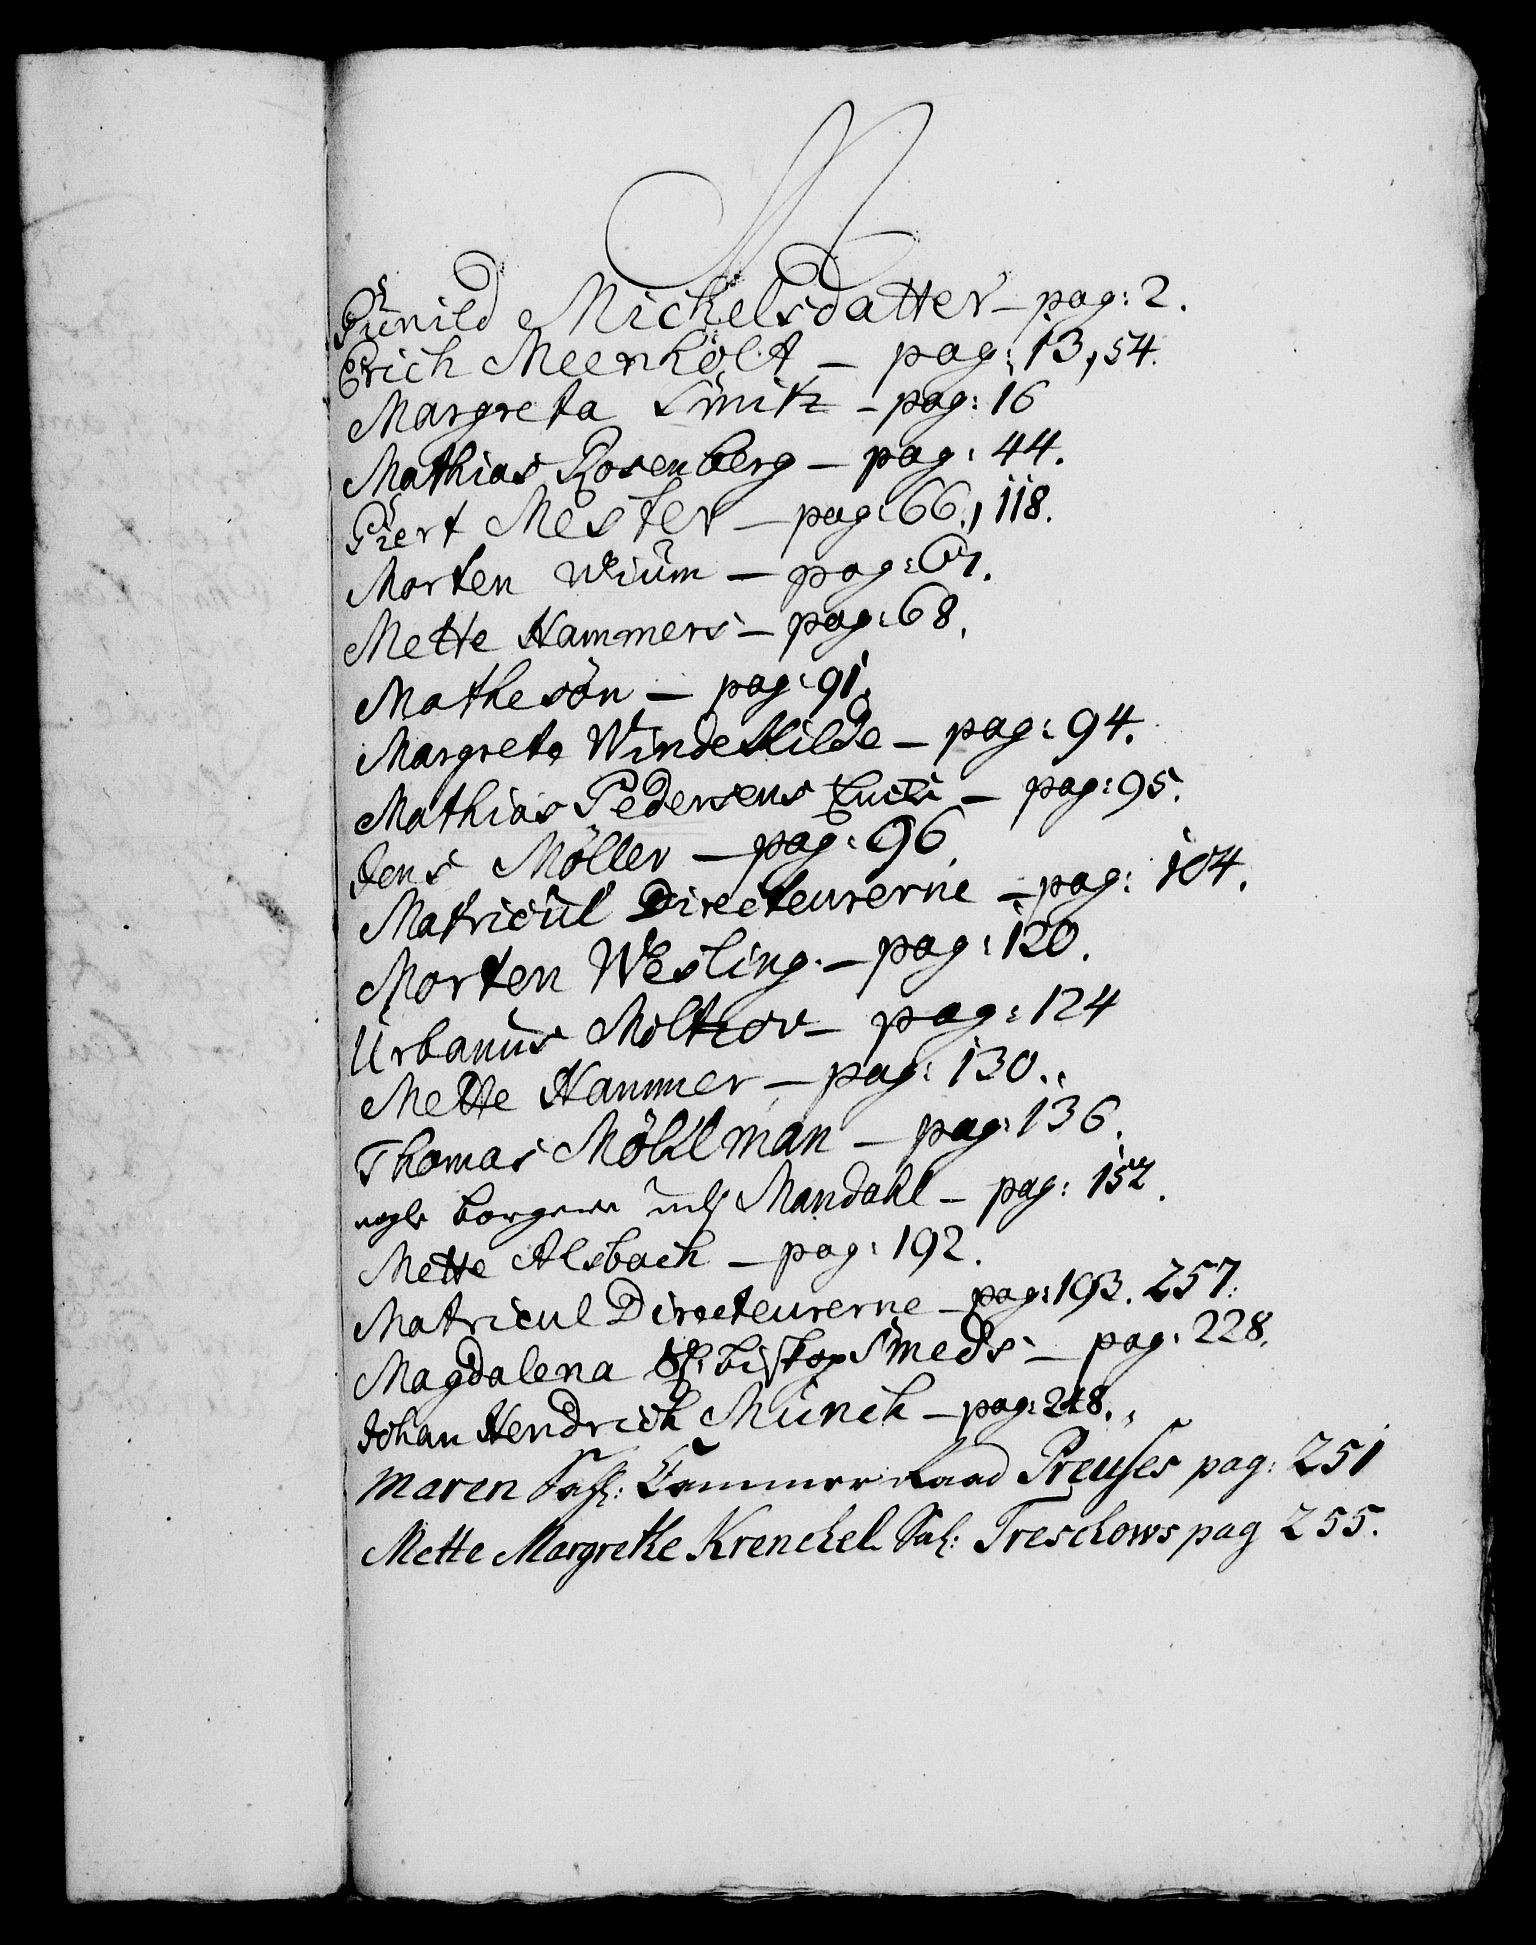 M
Gunild Mickelsdatter – pag: 2.
Erich Meenholt – pag: 13, 54.
Margreta Smitz – pag: 16
Mathias Rosenberg – pag: 44.
Giert Mester – pag: 66., 118.
Morten Wium – pag: 67.
Mette Hammers – pag: 68.
Matheson – pag: 91.
Margreta Windekilde – pag: 94.
Mathias Pedersens – pag: 95.
Jens Möller – pag: 96.
Matricul Directeurerne – pag: 104.
Morten Wesling. – pag: 120.
Urbanus Moltzov – pag: 124
Mette Hammer – pag: 130.
Thomas Möhlman – pag: 136.
nogle borgere udj Mandahl – pag: 152.
Mette Alsbach – pag: 192.
Matricul Directeurerne – pag: 193. 257.
Magdalena Sl: biskop Smeds – pag: 228.
Johan Hendrich Münch – pag: 248.
Maren Sahl: Cammer Raad Preuses pag: 251
Mette Margrethe Krenckel Sal: Treschows pag 255.